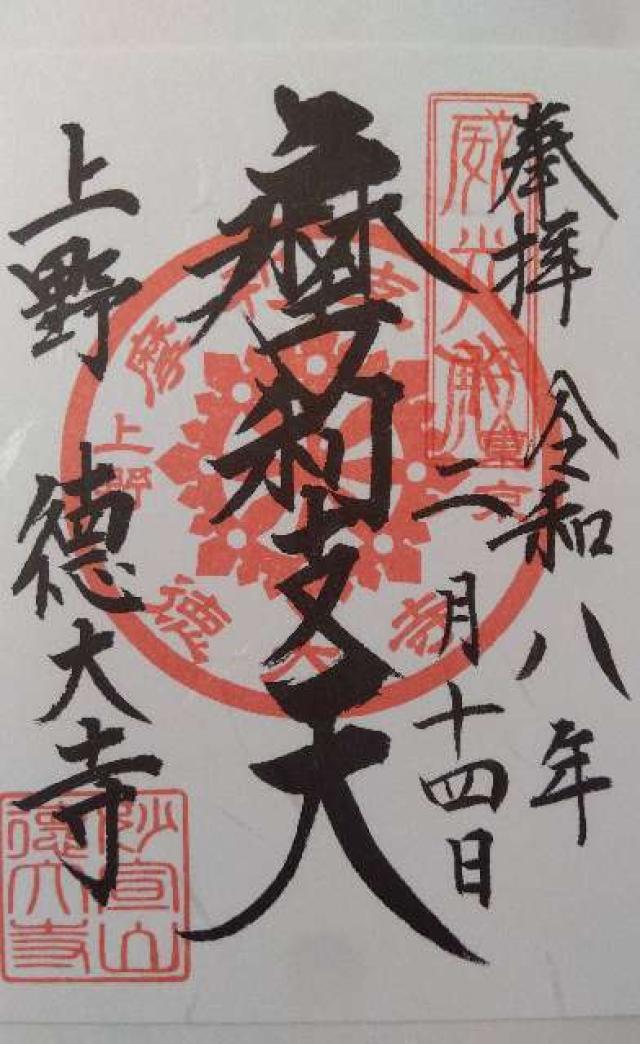 奉拝 令和八年
二月十四日
摩利支天
上野 德大寺
威光殿
摩利支天
上野
東京
德大寺
妙宣山
德大寺